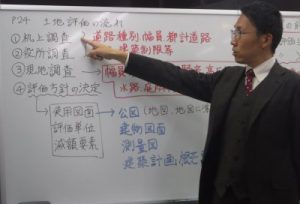 P24 土地評価の流れ
①机上調査 道路種別/幅員/都計道路
②役所調査 建築制限等
③現地調査 幅員
④評価方針の決定 水路
使用図面 公図(地図、地図に
評価単位 建物図面
減額要素 測量図
建築計画